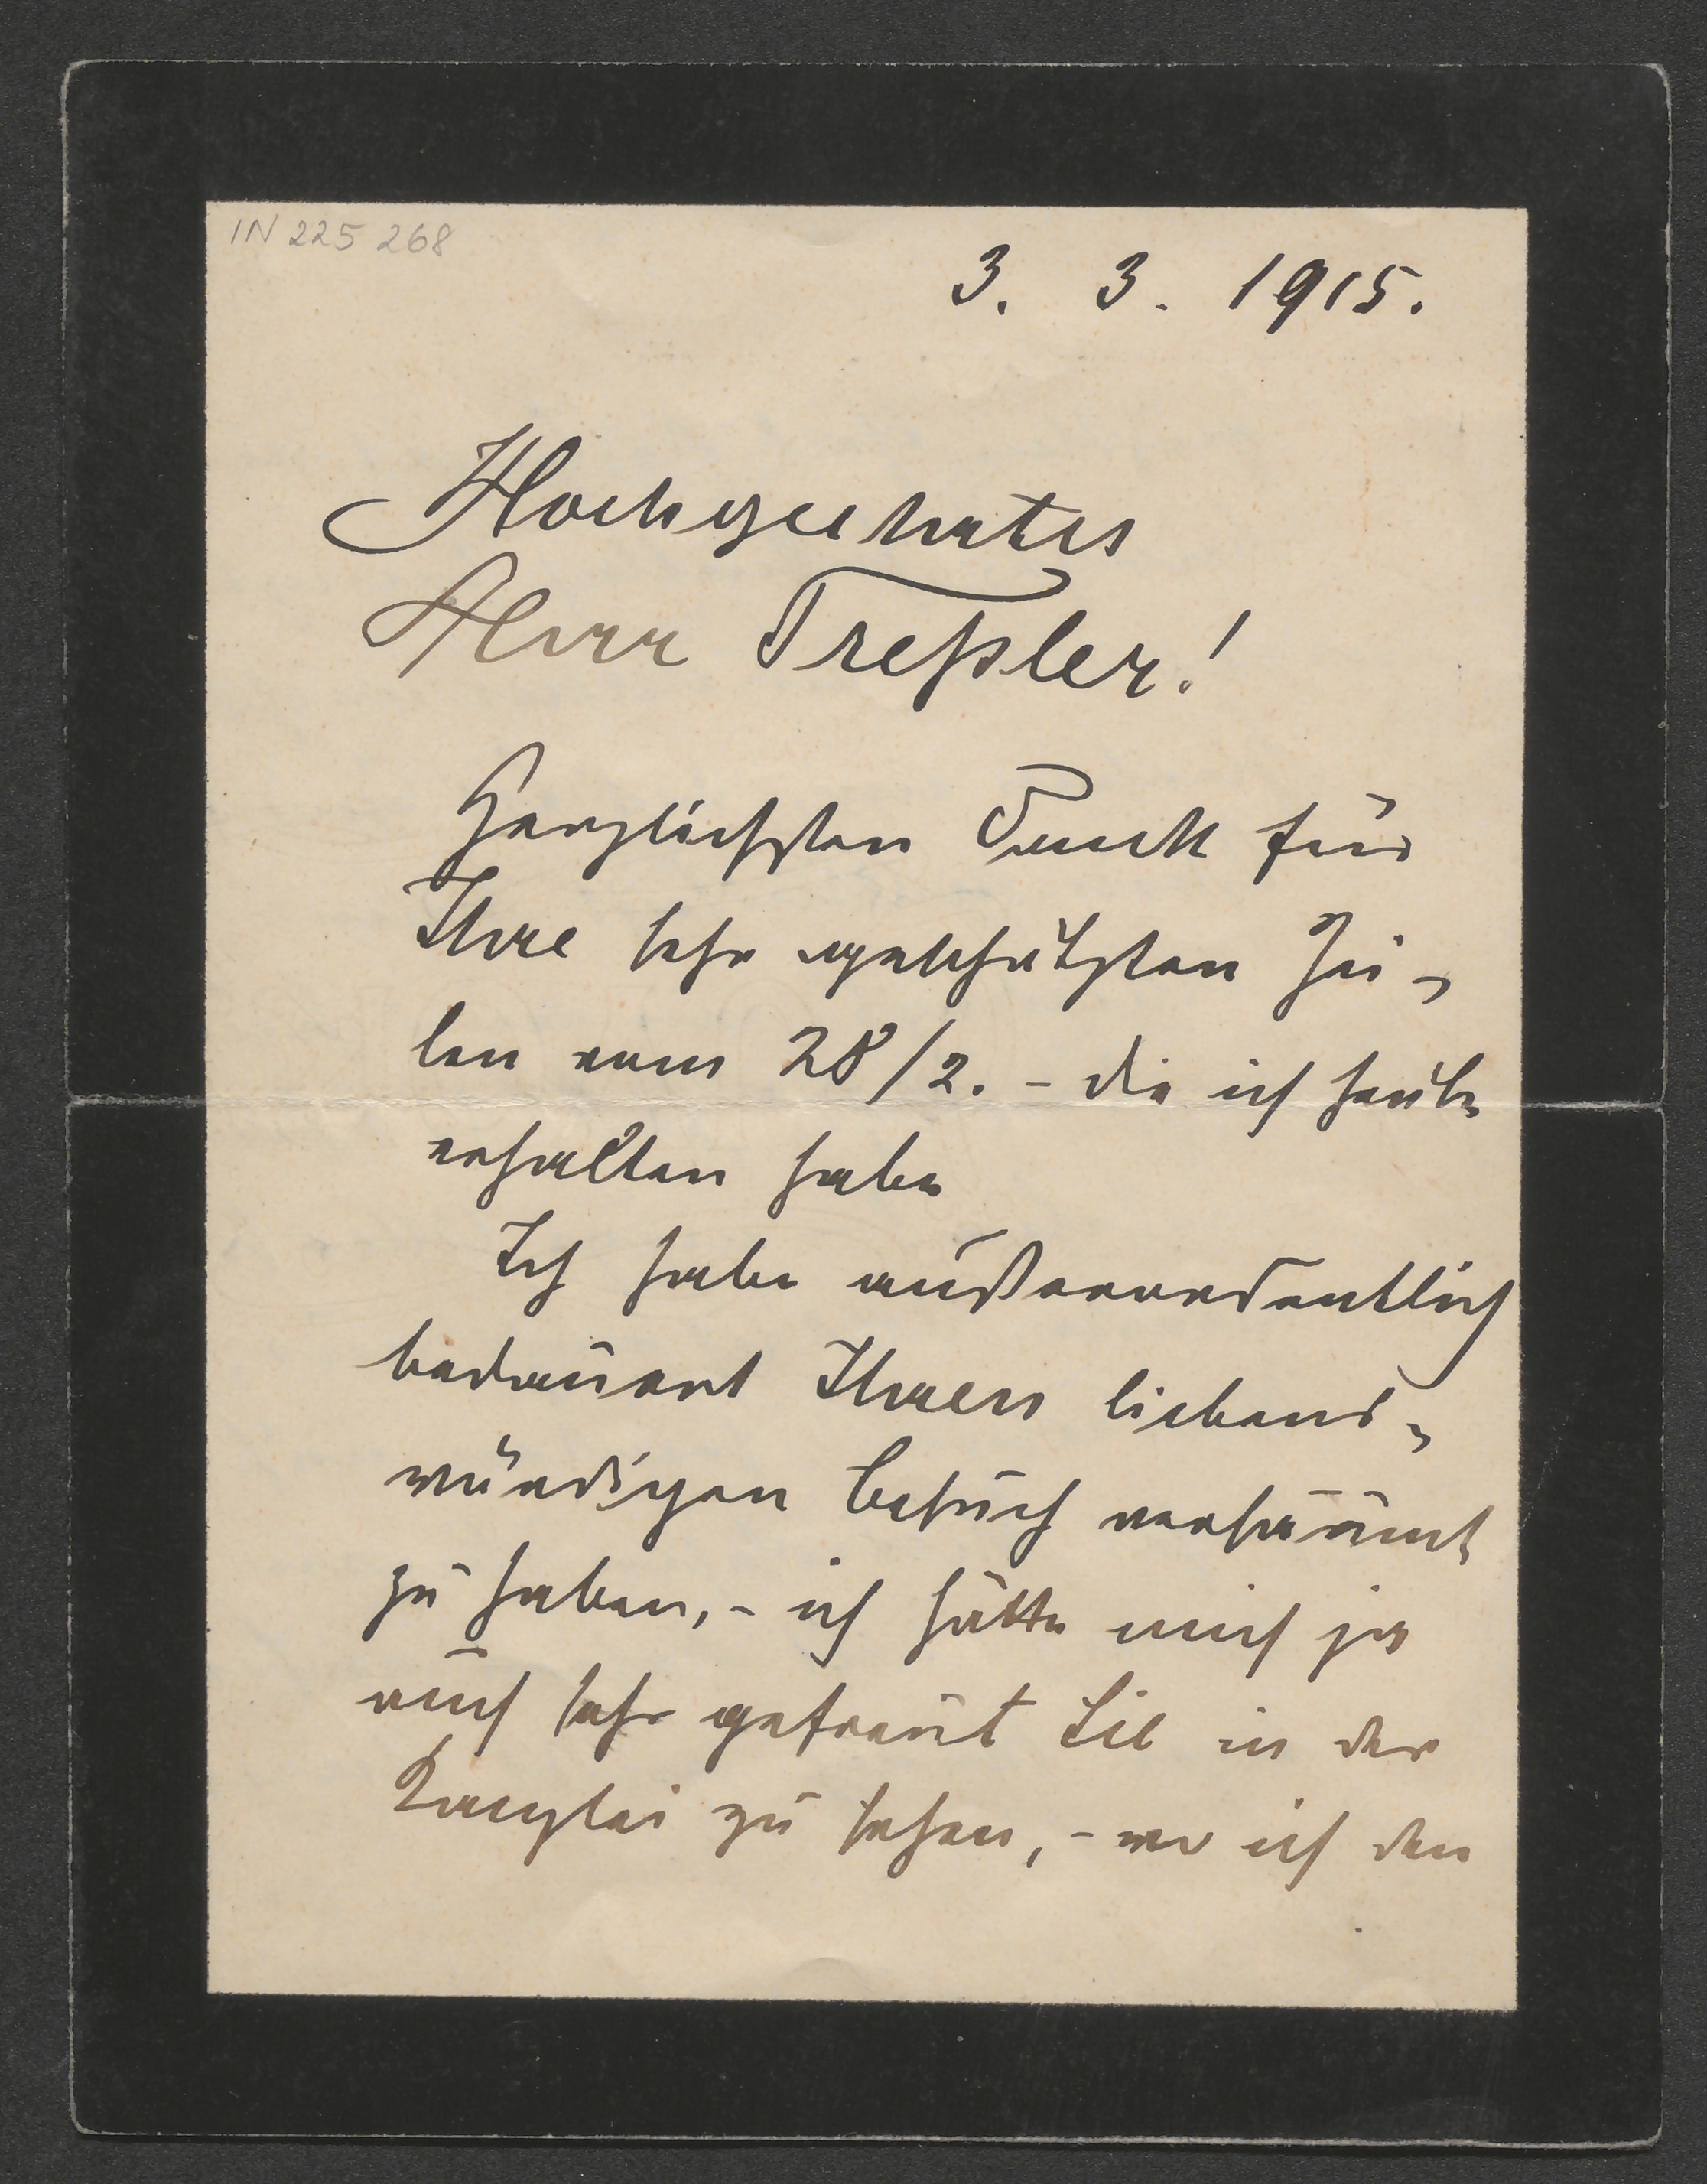 IN 225 268
3. 3. 1915.
Hochgeehrter
Herr Treßler!
Herzlichsten Dank für
Ihre sehr geschätzten Zei-
len vom 28/2. – die ich heute
erhalten habe
Ich habe außerordentlich
bedauert Ihren liebens-
würdigen Besuch versäumt
zu haben, – ich hätte mich ja
auch sehr gefreut Sie in der
Kanzlei zu sehen, – wo ich den